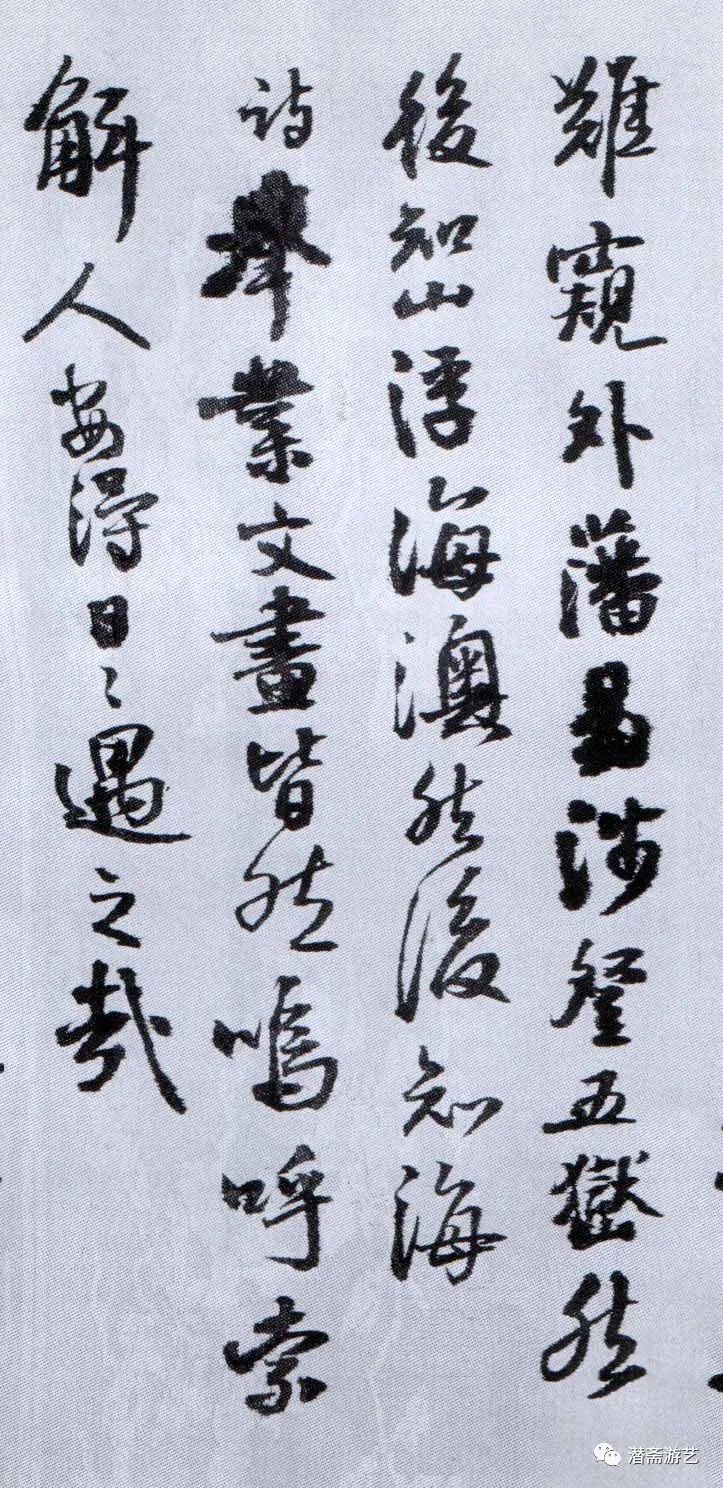 難窺外藩易涉登五嶽然
後知山浮海澳然後知海
詩舉業文畫皆然嗚呼索
解人安得日〻遇之哉
潜斋游艺